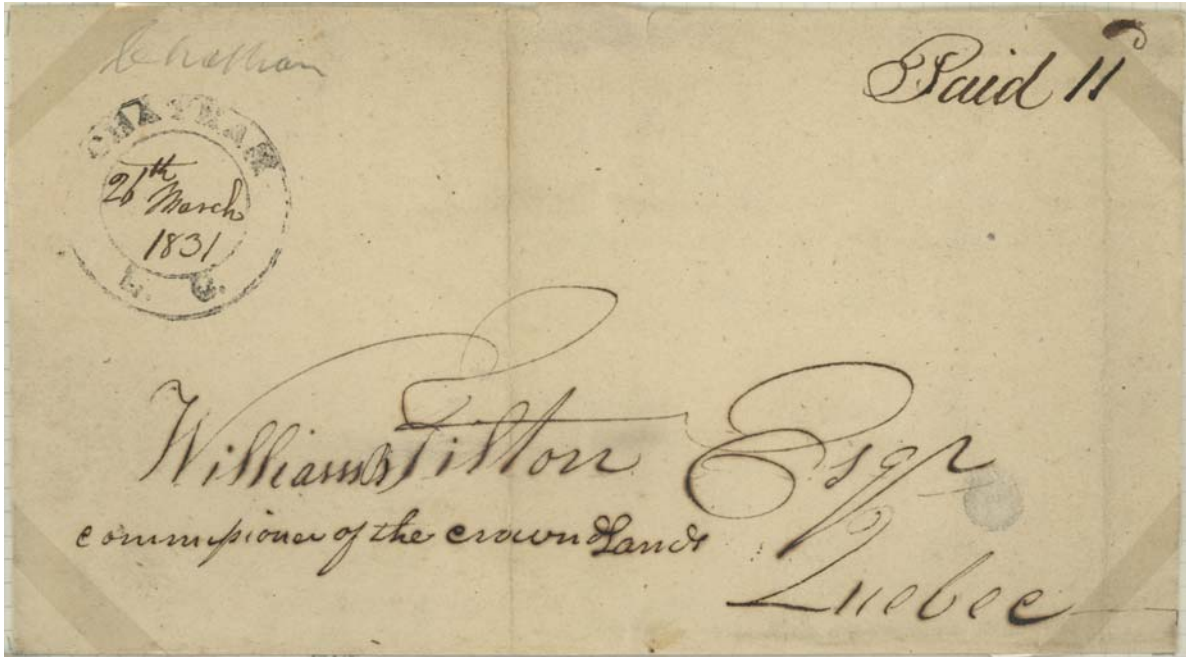 Chatham
Paid 11
CHATHAM
26th
March
1831
L. C.
William B Tilton Esqr
commissioner of the crown Lands
Quebec